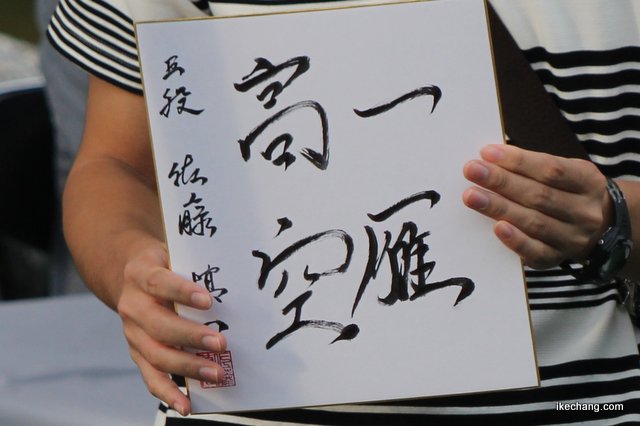 一雁
高空
五段 佐藤慎一
ikechang.com